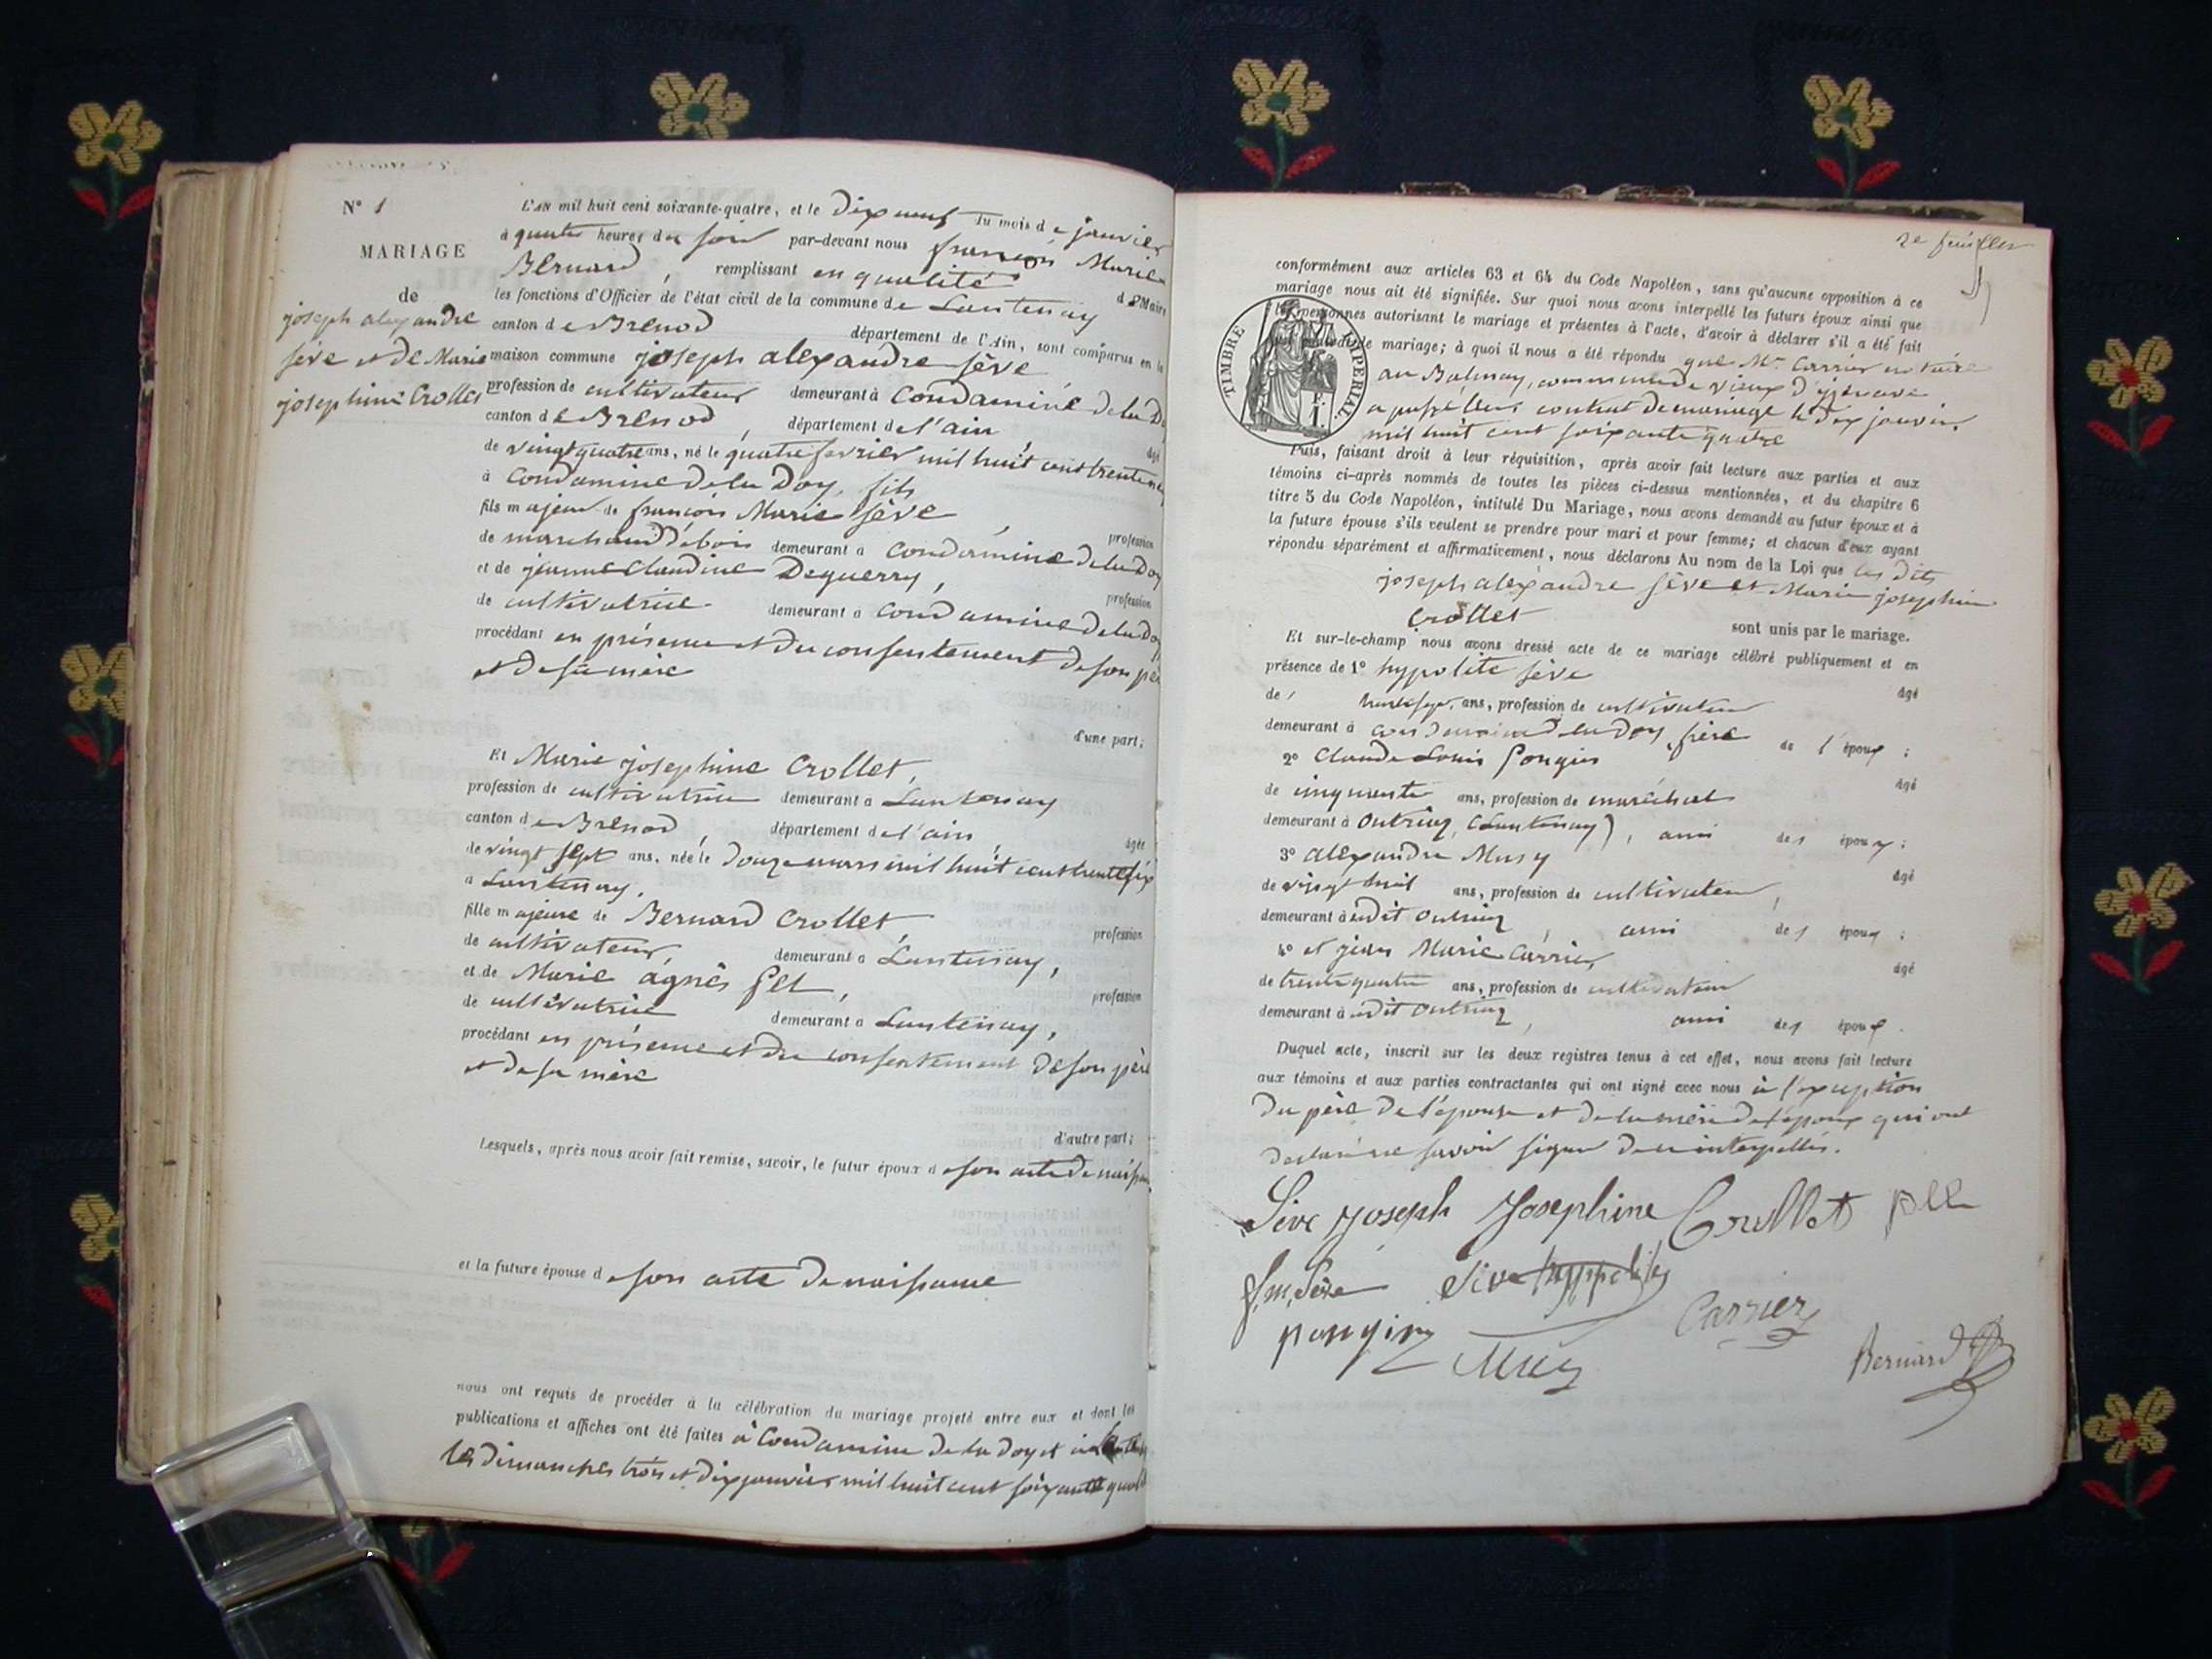 N° 1
MARIAGE
de
joseph alexandre
sève et de Marie
josephine Crollet
L'AN mil huit cent soixante-quatre, et le dix neuf du mois de janvier
à quatre heures du soir par-devant nous françois Marie
Bernard, remplissant en qualité de Maire
les fonctions d'Officier de l'état civil de la commune de Lantenay
canton de Brenod département de l'Ain, sont comparus en la
maison commune joseph alexandre sève
profession de cultivateur demeurant à Condamine de la Do
canton de Brenod, département de l'ain, âgé
de vingt quatre ans, né le quatre fevrier mil huit cent trente
à Condamine de la Doy, fils
fils majeur de françois Marie sève, profession
de marchand de bois demeurant à Condamine de la Doy
et de jeanne Claudine Deguerry, profession
de cultivatrice demeurant à Condamine de la Do
procédant en présence et du consentement de son pè
et de sa mère
d'une part;
Et Marie josephine Crollet,
profession de cultivatrice demeurant à Lantenay
canton de Brenod, département de l'ain, âgée
de vingt sept ans, née le douze mars mil huit cent trente six
à Lantenay,
fille majeure de Bernard Crollet, profession
de cultivateur, demeurant à Lantenay,
et de Marie agnès Pel, profession
de cultivatrice demeurant à Lantenay,
procédant en présence et du consentement de son père
et de sa mère
d'autre part;
Lesquels, après nous avoir fait remise, savoir, le futur époux de son acte de naissan
et la future épouse de son acte de naissance
nous ont requis de procéder à la célébration du mariage projeté entre eux et dont les
publications et affiches ont été faites à Condamine de la Doy et
les dimanches trois et dix janvier mil huit cent soixante quat
2e feuillet
conformément aux articles 63 et 64 du Code Napoléon, sans qu'aucune opposition à ce
mariage nous ait été signifiée. Sur quoi nous avons interpellé les futurs époux ainsi que
les personnes autorisant le mariage et présentes à l'acte, d'avoir à déclarer s'il a été fait
de mariage; à quoi il nous a été répondu que Me Carrier notaire
TIMBRE IMPERIAL
au Balmay, commune de vieux d'izenave
a passé leur contrat de mariage le dix janvier
mil huit cent soixante quatre
Puis, faisant droit à leur réquisition, après avoir fait lecture aux parties et aux
témoins ci-après nommés de toutes les pièces ci-dessus mentionnées, et du chapitre 6
titre 5 du Code Napoléon, intitulé Du Mariage, nous avons demandé au futur époux et à
la future épouse s'ils veulent se prendre pour mari et pour femme; et chacun d'eux ayant
répondu séparément et affirmativement, nous déclarons Au nom de la Loi que les dits
joseph alexandre sève et Marie josephine
Crollet
sont unis par le mariage.
Et sur-le-champ nous avons dressé acte de ce mariage célébré publiquement et en
présence de 1° hypolite sève âgé
de ans, profession de cultivateur
demeurant à Condamine de la Doy, frère de l'époux;
2° Claude Louis Pongin âgé
de cinquante ans, profession de maréchal
demeurant à Outriaz, (Lantenay), ami des époux;
3° alexandre Musy âgé
de vingt huit ans, profession de cultivateur,
demeurant à udit Outriaz, ami des époux;
4° et jean Marie Carrier, âgé
de trente quatre ans, profession de cultivateur
demeurant à udit Outriaz, ami des époux.
Duquel acte, inscrit sur les deux registres tenus à cet effet, nous avons fait lecture
aux témoins et aux parties contractantes qui ont signé avec nous à l'exception
du père de l'épouse et de la mère de l'époux qui ont
déclaré ne savoir signer de ce interpellés.
Sève joseph Josephine Crollet pel
f,m, Sève Sève hyppolite
pongin Musy Carrier
Bernard